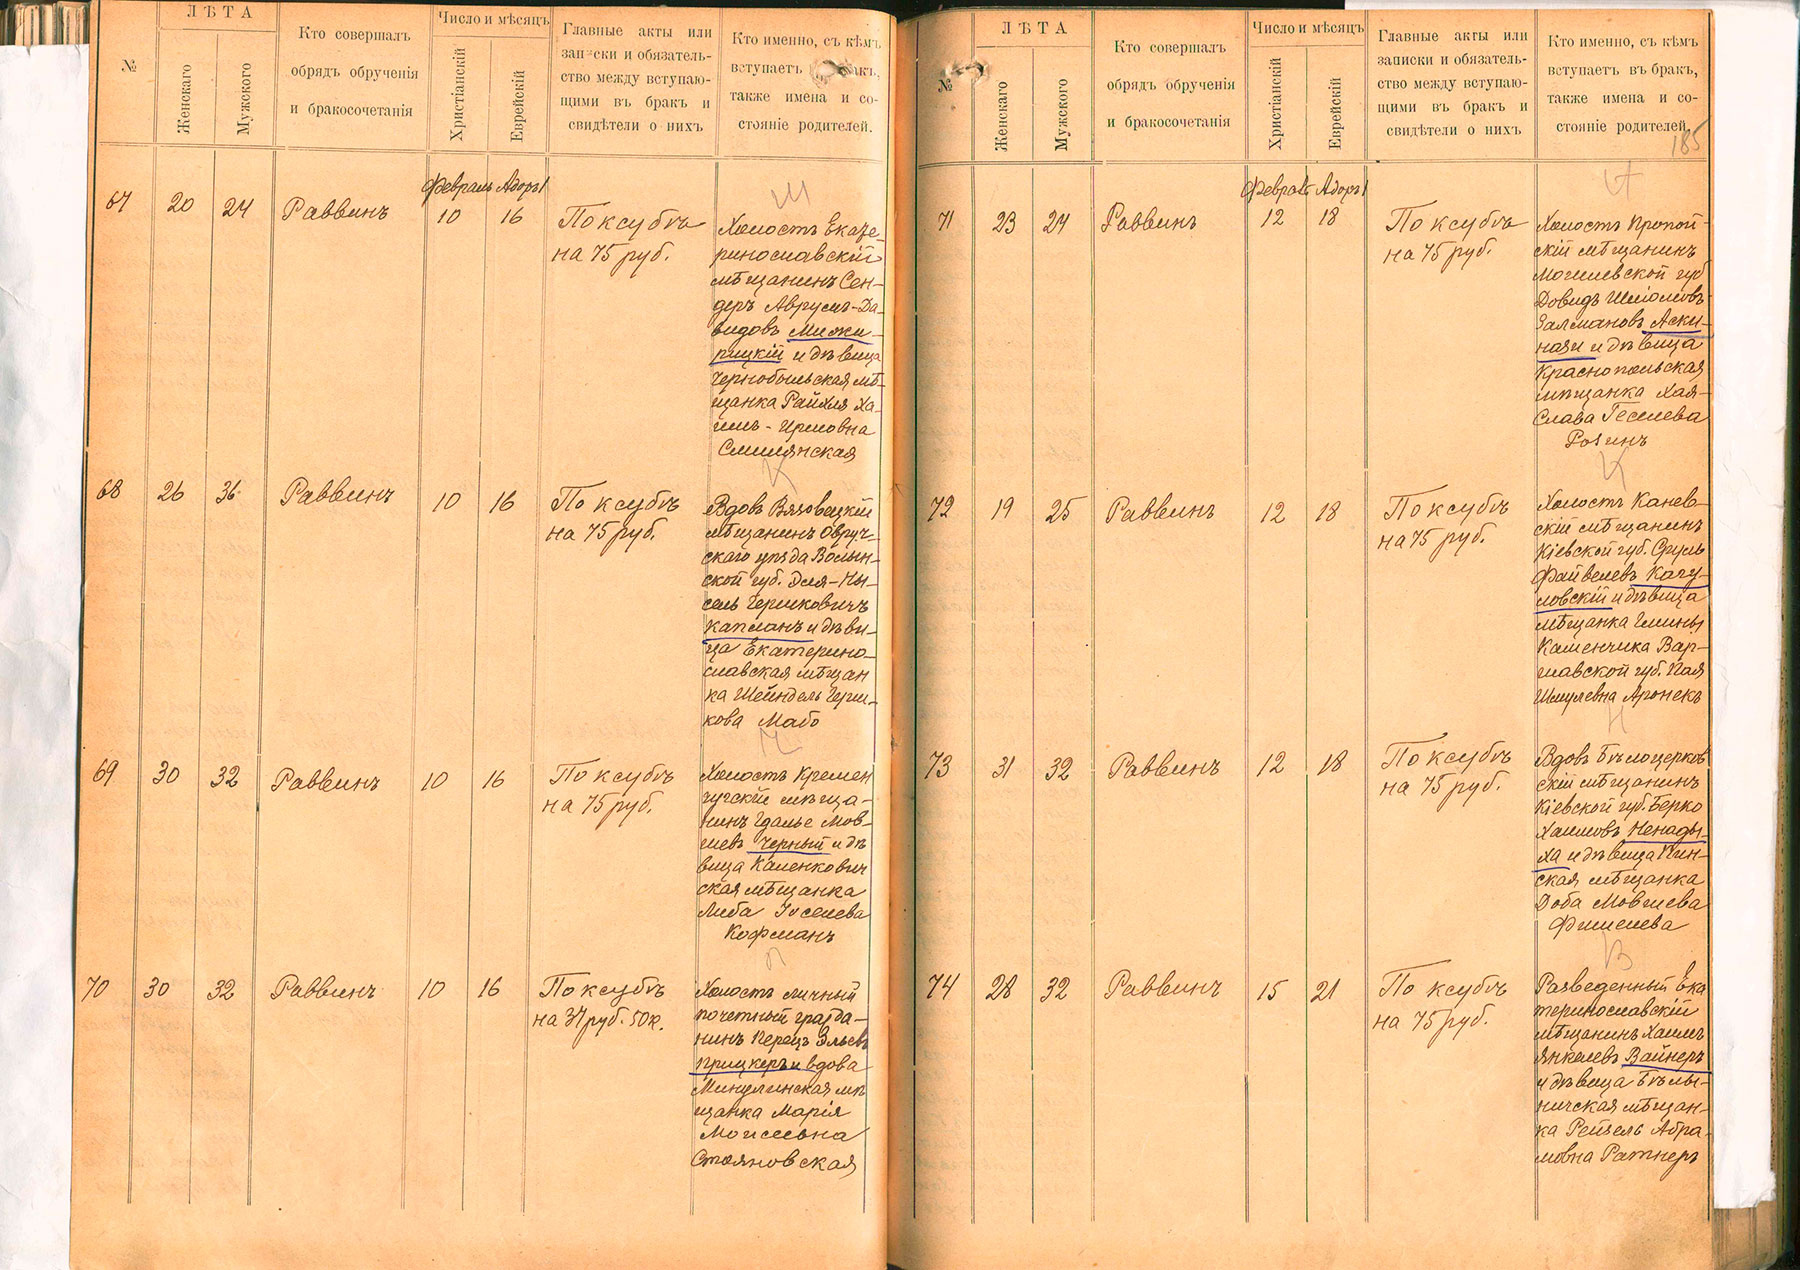 №
ЛѢТА
Женскаго
Мужского
Кто совершалъ
обрядъ обрученія
и бракосочетанія
Число и мѣсяцъ
Христіанскій
Еврейскій
Главные акты или
записки и обязатель-
ство между вступаю-
щими въ бракъ и
свидѣтели о нихъ
Кто именно, съ кѣмъ
вступаетъ бракъ,
также имена и со-
стояніе родителей.
Февраль Адоръ I
67 20 24 Раввинъ 10 16
По ксубѣ
на 75 руб.
Ш
Холостъ Екате-
ринославскій
мѣщанинъ Сен-
деръ Аврумъ-Да-
видовъ Межи-
рицкій и дѣвица
Чернобыльская мѣ-
щанка Райхля Ха-
имъ-Ирмовна
Смилянская
68 26 36 Раввинъ 10 16
По ксубѣ
на 75 руб.
К
Вдовъ
мѣщанинъ Овруч-
скаго уѣзда Волын-
ской губ. Эля-Ны-
сель Гершковичъ
Капланъ и дѣви-
ца Екатерино-
славская мѣщан
ка Шейндель Герш-
кова Мабо
69 30 32 Раввинъ 10 16
По ксубѣ
на 75 руб.
Ч
Холостъ Кремен
чугскій мѣща-
нинъ Гдалье Мов-
шевъ Черный и дѣ
вица Каменкович
ская мѣщанка
Либа Іоселева
Кофманъ
70 30 32 Раввинъ 10 16
По ксубѣ
на 37 руб. 50 к.
П
Холостъ личный
почетный гражда-
нинъ Перецъ Эльевъ
Прицкеръ и вдова
мѣ
щанка Марія
Моисеевна
Стояновская
185
№
ЛѢТА
Женскаго
Мужского
Кто совершалъ
обрядъ обрученія
и бракосочетанія
Число и мѣсяцъ
Христіанскій
Еврейскій
Главные акты или
записки и обязатель-
ство между вступаю-
щими въ бракъ и
свидѣтели о нихъ
Кто именно, съ кѣмъ
вступаетъ въ бракъ,
также имена и со-
стояніе родителей.
Февраль Адоръ I
71 23 24 Раввинъ 12 18
По ксубѣ
на 75 руб.
А
Холостъ Пропой-
скій мѣщанинъ
Могилевской губ
Довидъ Шлiомовъ-
Залмановъ Аски-
нази и дѣвица
Краснопольская
мѣщанка Хая-
Слава Геселева
Розинъ
72 19 25 Раввинъ 12 18
По ксубѣ
на 75 руб.
К
Холостъ Канев-
скій мѣщанинъ
Кіевской губ. Сруль
Файвелевъ Кагу-
ловскій и дѣвица
мѣщанка Гмины
Каменчика Вар-
шавской губ. Пая
Шмулевна Аронекъ
73 31 32 Раввинъ 12 18
По ксубѣ
на 75 руб.
Н
Вдовъ Бѣлоцерков
скій мѣщанинъ
Кіевской губ. Берко
Хаимовъ Ненады-
ха и дѣвица Пин-
ская мѣщанка
Доба Мовшева
Фишелева
74 28 32 Раввинъ 15 21
По ксубѣ
на 75 руб.
В
Разведенный Ека
теринославскій
мѣщанинъ Хаимъ
Янкелевъ Вайнеръ
и дѣвица Бѣлы-
ничская мѣщан-
ка Рейзель Абра-
мовна Ратнеръ